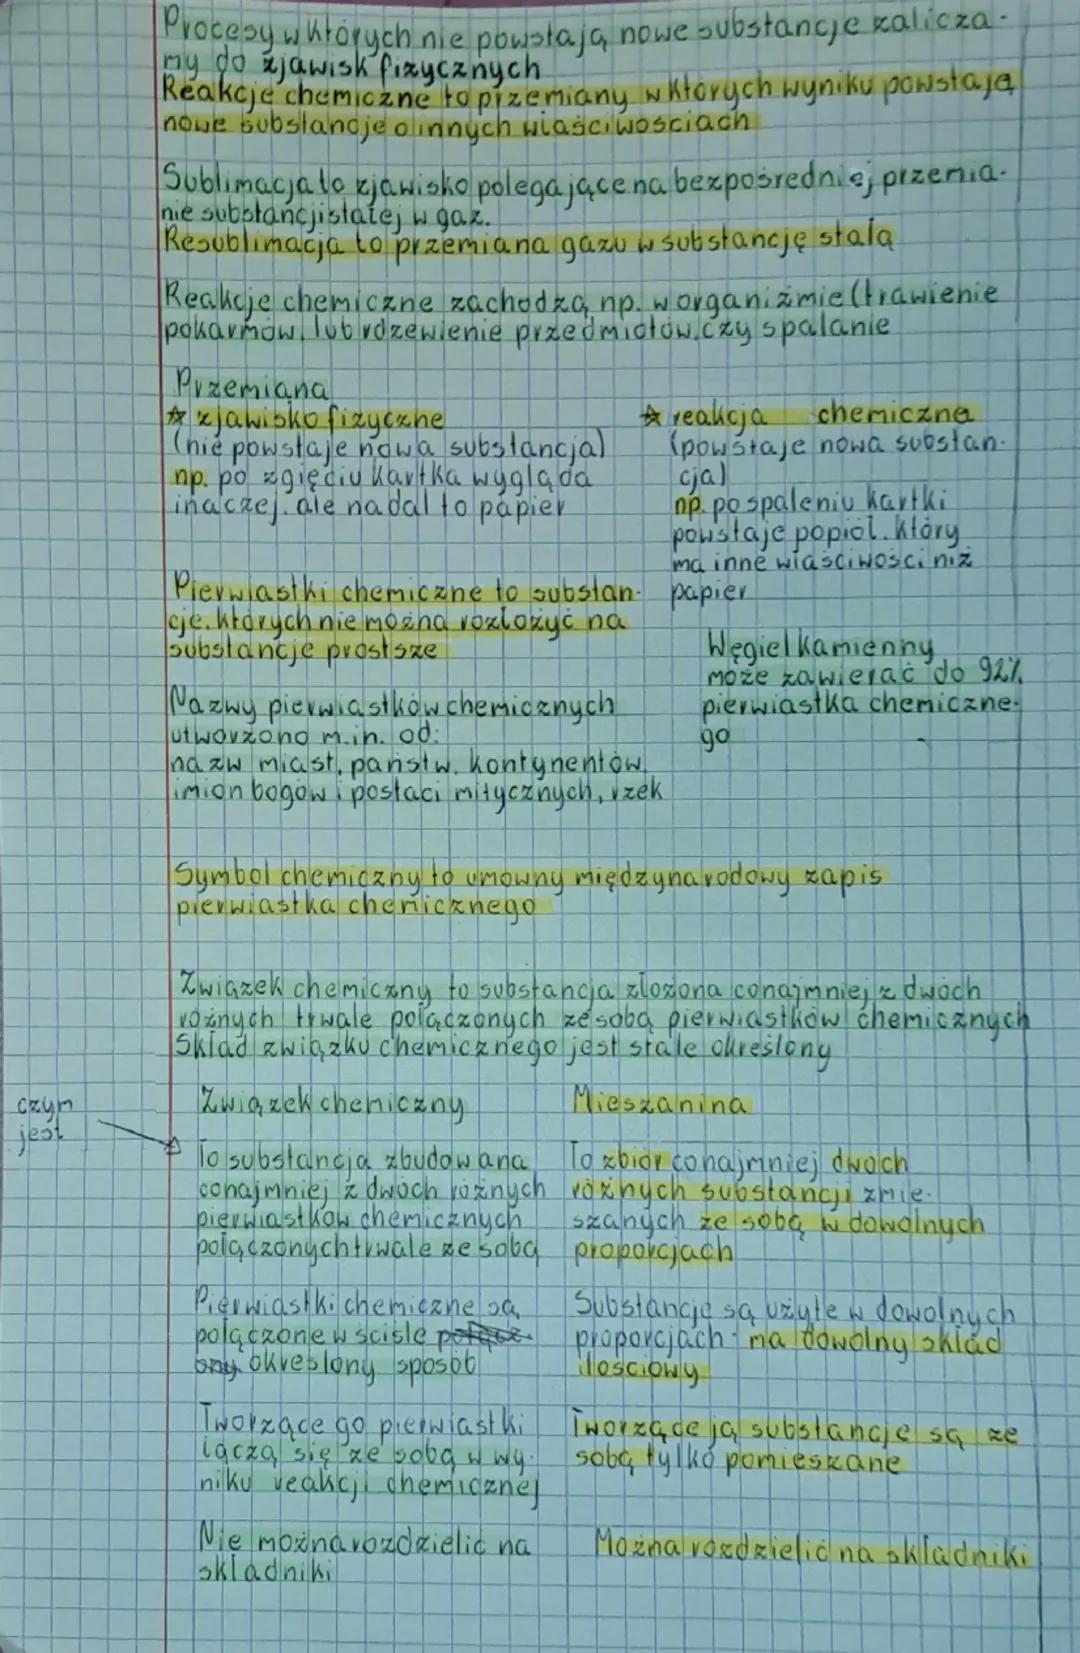 Procesy w których nie powstają nowe substancje zalicza-
my do zjawisk fizycznych
Reakcje chemiczne to przemiany w których wyniku powstają
nowe substancje o innych właściwościach
Sublimacja to zjawisko polegające na bezpośredniej przemia-
nie substancji stałej w gaz.
Resublimacja to przemiana gazu w substancję stałą
Reakcje chemiczne zachodzą np. w organizmie (trawienie
pokarmów, lub rdzewienie przedmiotów, czy spalanie
Przemiana
☆ zjawisko fizyczne
(nie powstaje nowa substancja)
np. po zgięciu kartka wygląda
inaczej, ale nadal to papier
☆ reakcja chemiczna
(powstaje nowa substan-
cja)
np. po spaleniu kartki
powstaje popiół, który
ma inne właściwości niż
papier
Pierwiastki chemiczne to substan-
cje, których nie można rozłożyć na
substancje prostsze
Węgiel kamienny
może zawierać do 92%
pierwiastka chemiczne-
go
Nazwy pierwiastków chemicznych
utworzono m.in. od:
nazw miast, państw, kontynentów,
imion bogów i postaci mitycznych, rzek
Symbol chemiczny to umowny międzynarodowy zapis
pierwiastka chemicznego
Związek chemiczny to substancja złożona conajmniej z dwóch
różnych trwale połączonych ze sobą pierwiastków chemicznych
Skład związku chemicznego jest stale określony
czym
jest
Związek chemiczny
To substancja zbudowana
conajmniej z dwóch różnych
pierwiastków chemicznych
połączonych trwale ze sobą
Pierwiastki chemiczne są
połączone w ściśle
określony sposób
Tworzące go pierwiastki
łączą się ze sobą w wy-
niku reakcji chemicznej
Nie można rozdzielić na
składniki
Mieszanina
To zbiór conajmniej dwóch
różnych substancji zmie-
szanych ze sobą w dowolnych
proporcjach
Substancje są użyte w dowolnych
proporcjach - ma dowolny skład
ilościowy
Tworzące ją substancje są ze
sobą tylko pomieszane
Można rozdzielić na składniki